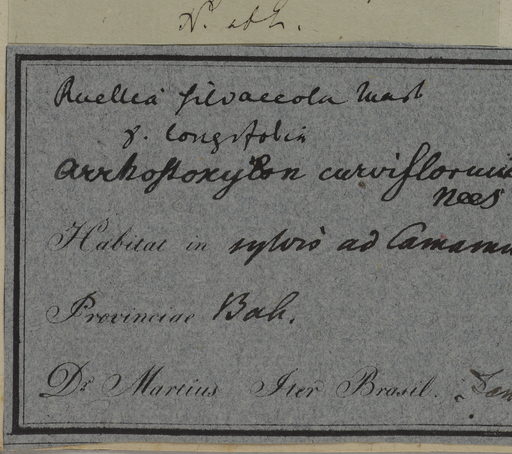 Ruellia silvaccola Mart
γ. longifolia
Arrhostoxylon curviflorum
Nees
Habitat in sylvis ad Camamu
Provinciae Bah.
Dr. Martius Iter Brasil.